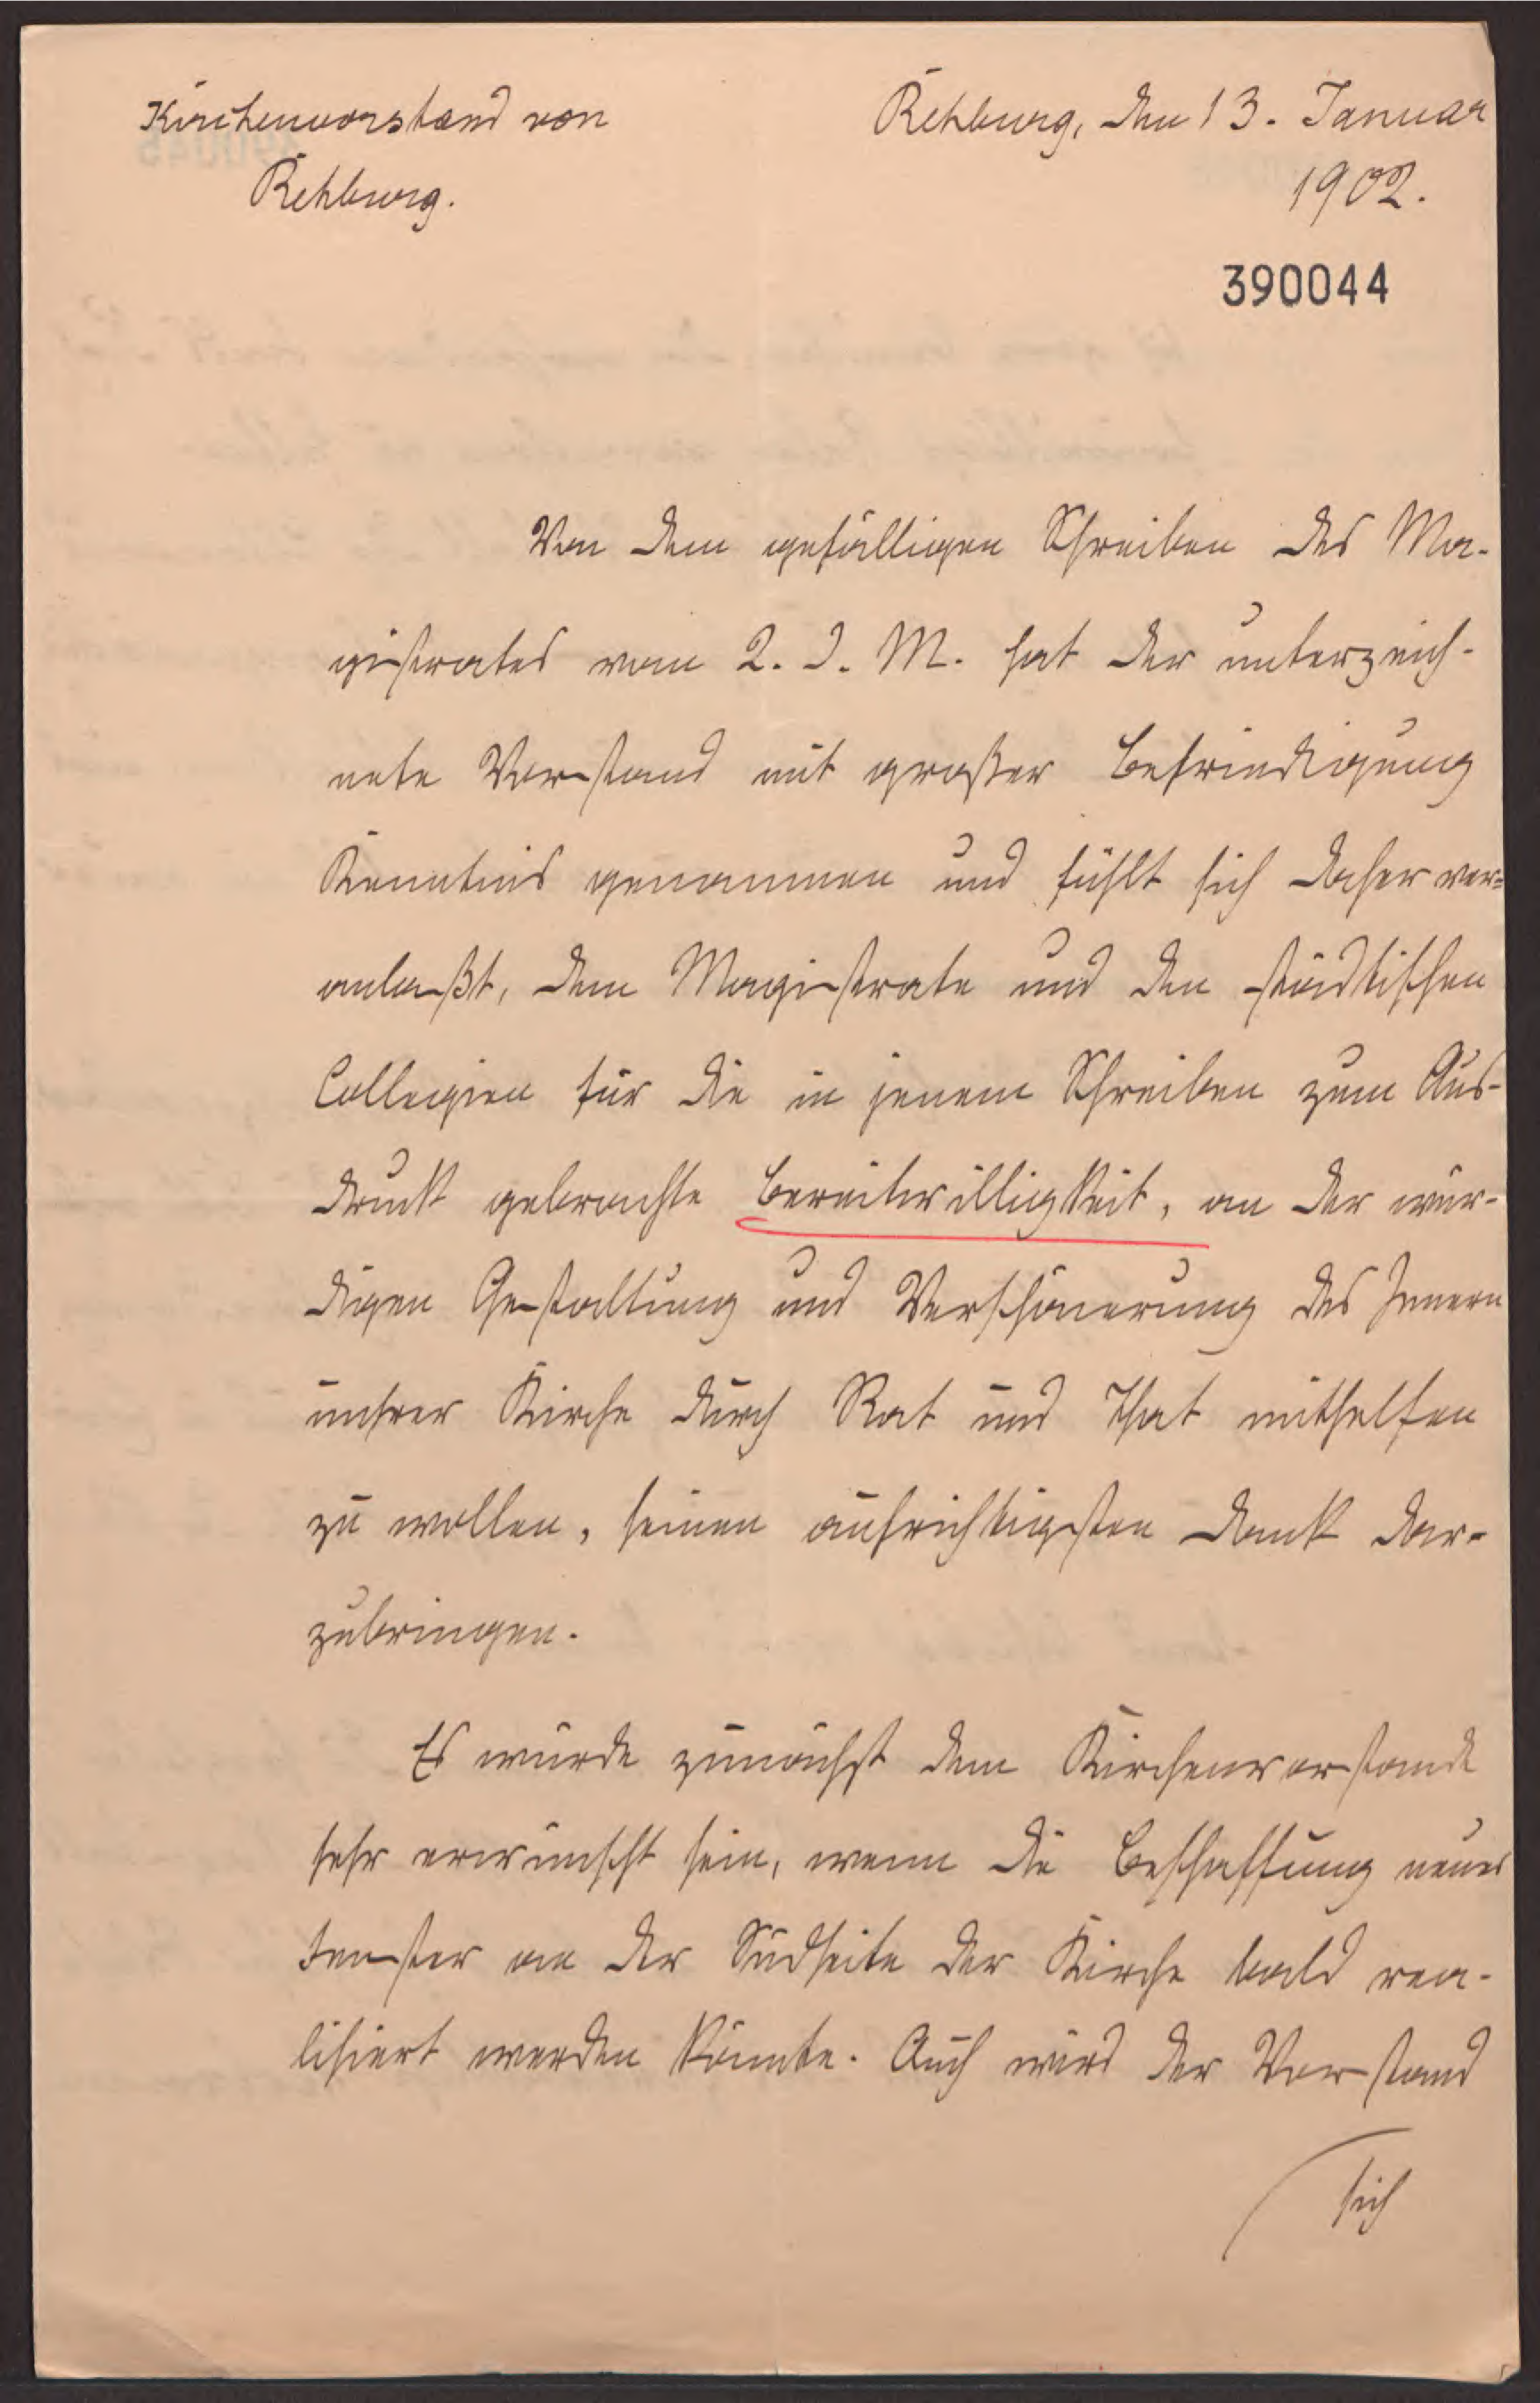 Kirchenvorstand von
Rehburg.
Rehburg, den 13. Januar
1902.
390044
Von dem gefälligen Schreiben des Ma-
gistrates vom 2. d. M. hat der unterzeich-
nete Vorstand mit großer Befriedigung
Kenntnis genommen und fühlt sich daher ver-
anlaßt, dem Magistrate und den städtischen
Collegien für die in jenem Schreiben zum Aus-
druck gebrachte Bereitwilligkeit, an der wür-
digen Gestaltung und Verschönerung des Innern
unsrer Kirche durch Rat und That mithelfen
zu wollen, seinen aufrichtigsten Dank dar-
zubringen.
Es würde zunächst dem Kirchenvorstande
sehr erwünscht sein, wenn die Beschaffung neuer
Fenster an der Südseite der Kirche bald rea-
lisiert werden könnte. Auch wird der Vorstand
sich